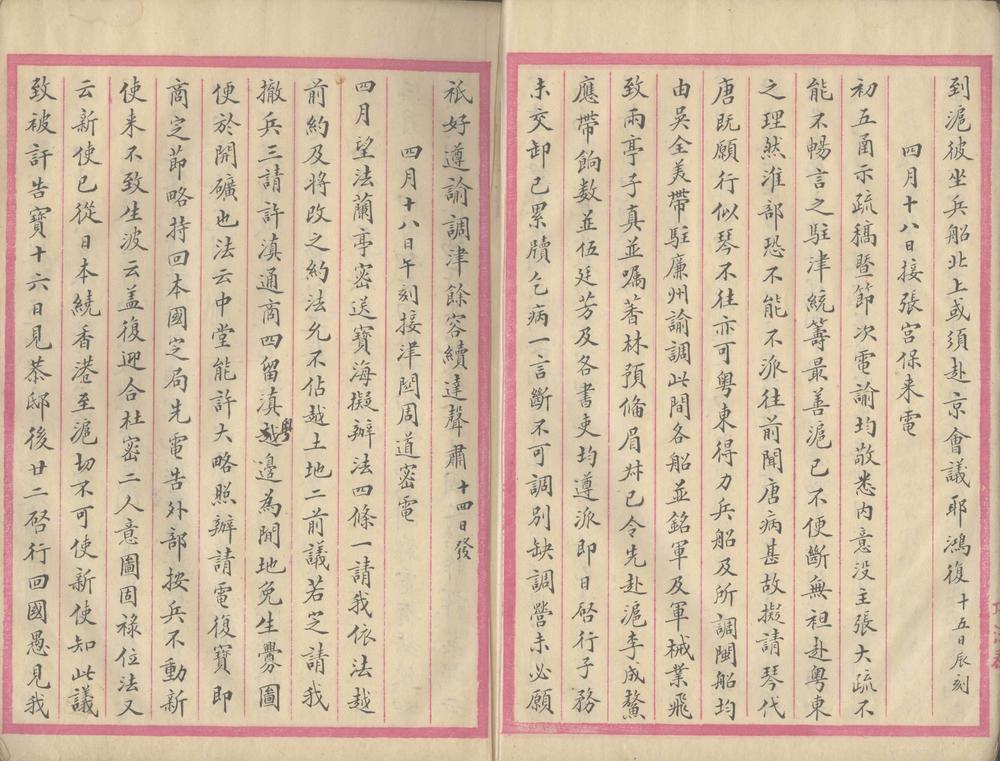 到滬彼坐兵船北上或須赴京會議耶鴻復 十五日辰刻
四月十八日接張宮保来電
初五函示疏稿暨節次電諭均敬悉內意没主張大疏不
能不暢言之駐津統籌最善滬已不便斷無袒赴粤東
之理然淮部恐不能不派往前聞唐病甚故擬請琴代
唐既願行似琴不往亦可粤東得力兵船及所調閩船均
由吳全美帶駐廉州諭調此間各船並銘軍及軍械業飛
致雨亭子真並嘱薈林預俻眉叔已令先赴滬李成鰲
應帶餉数並伍廷芳及各書吏均遵派即日啓行子務
未交卸已累牘乞病一言斷不可調別缺調營未必願
祇好遵諭調津餘容續達聲肅 十四日發
四月十八日午刻接津関周道密電
四月望法蘭亭密送寶海擬辦法四條一請我依法越
前約及将改之約法允不佔越土地二前議若芝請我
撤兵三請許滇通商四留滇粤邊為閒地免生釁圖
便於開礦也法云中堂能許大略照辦請電復寶即
商定節略持回本國定局先電告外部按兵不動新
使来不致生波云盖復迎合杜密二人意圖固祿位法又
云新使已從日本繞香港至滬切不可使新使知此議
致被訐告寶十六日見恭邸後廿二啓行回國愚見我